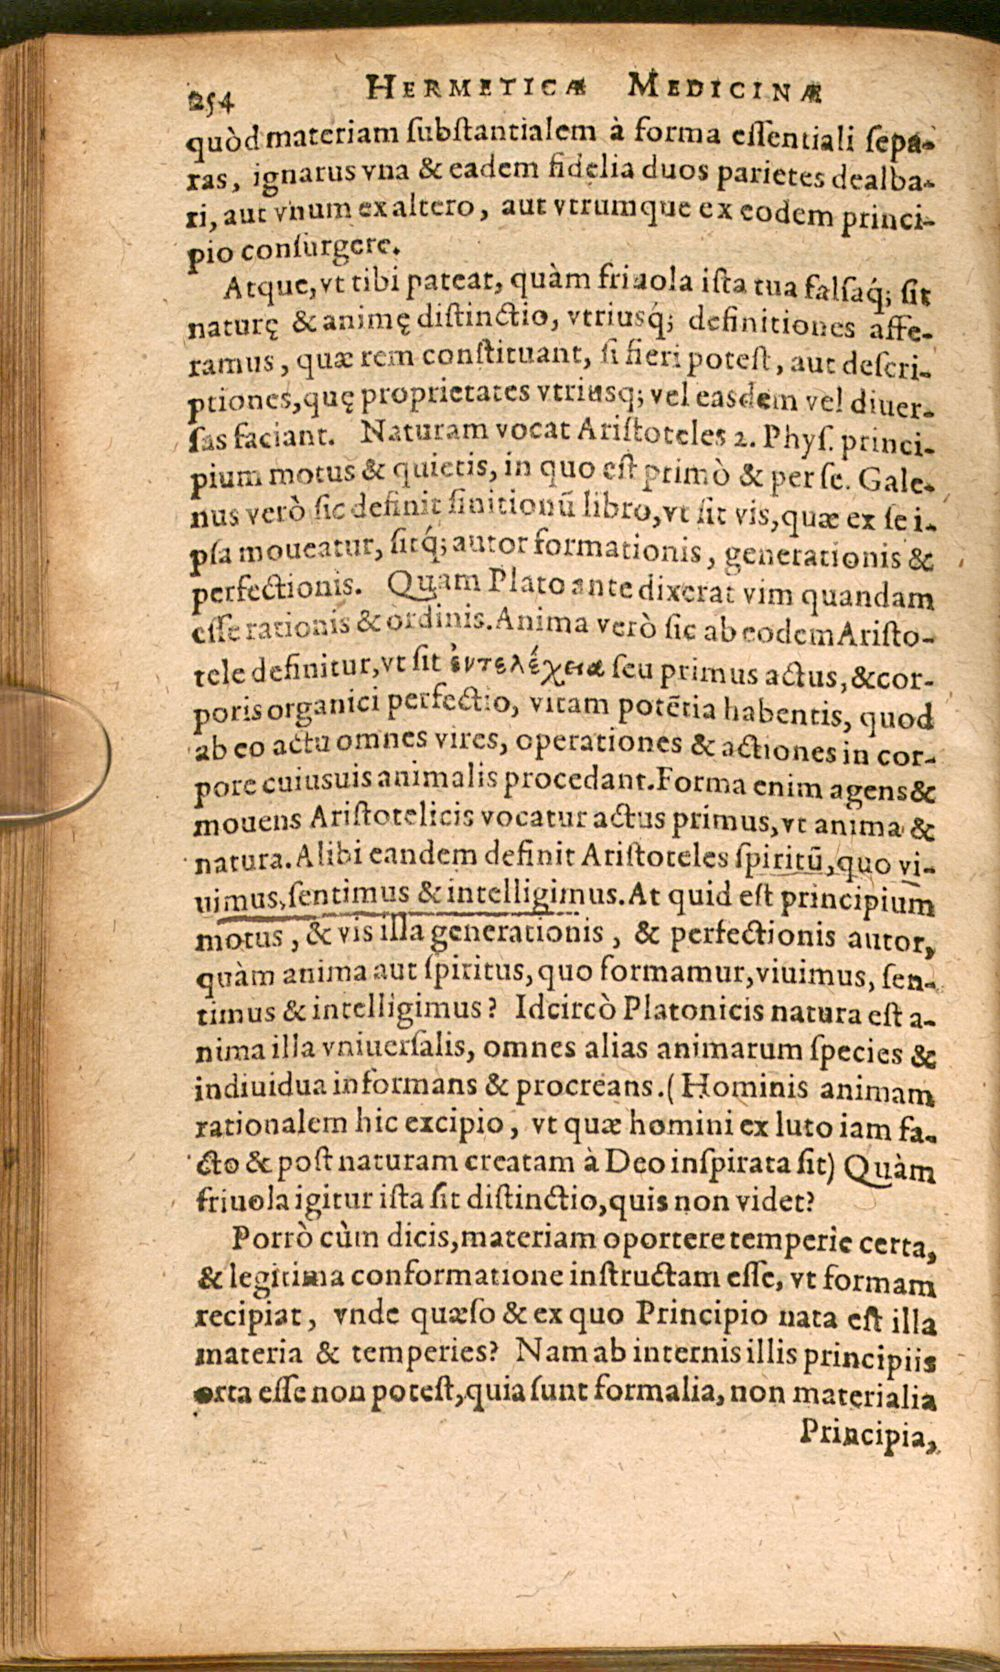 254 HERMETICÆ MEDICINÆ
quòd materiam ſubſtantialem à forma eſſentiali ſepa-
ras, ignarus vna & eadem fidelia duos parietes dealba-
ri, aut vnum ex altero, aut vtrumque ex eodem princi-
pio conſurgere.
Atque, vt tibi pateat, quàm friuola iſta tua falſaq́; ſit
naturę & animę diſtinctio, vtriuſq́; definitiones affe-
ramus, quæ rem conſtituant, ſi fieri poteſt, aut deſcri-
ptiones, quę proprietates vtriusq; vel easdem vel diuer-
ſas faciant. Naturam vocat Ariſtoteles 2. Phyſ. princi-
pium motus & quietis, in quo eſt primò & per ſe. Gale-
nus verò ſic definit finitionū libro, vt ſit vis, quæ ex ſe i-
pſa moueatur, ſitq́; autor formationis, generationis &
perfectionis. Quam Plato ante dixerat vim quandam
eſſe rationis & ordinis. Anima verò ſic ab eodem Ariſto-
tele definitur, vt ſit ἐντελέχεια ſeu primus actus, & cor-
poris organici perfectio, vitam potētia habentis, quod
ab eo actu omnes vires, operationes & actiones in cor-
pore cuiusuis animalis procedant. Forma enim agens &
mouens Ariſtotelicis vocatur actus primus, vt anima &
natura. Alibi eandem definit Ariſtoteles ſpiritū, quo vi-
uimus, ſentimus & intelligimus. At quid eſt principium
motus, & vis illa generationis, & perfectionis autor,
quàm anima aut ſpiritus, quo formamur, viuimus, ſen-
timus & intelligimus? Idcircò Platonicis natura eſt a-
nima illa vniuerſalis, omnes alias animarum ſpecies &
indiuidua informans & procreans. (Hominis animam
rationalem hic excipio, vt quæ homini ex luto iam fa-
cto & poſt naturam creatam à Deo inſpirata ſit) Quàm
friuola igitur iſta ſit diſtinctio, quis non videt?
Porrò cùm dicis, materiam oportere temperie certa,
& legitima conformatione inſtructam eſſe, vt formam
recipiat, vnde quæſo & ex quo Principio nata eſt illa
materia & temperies? Nam ab internis illis principiis
orta eſſe non poteſt, quia ſunt formalia, non materialia
Principia,